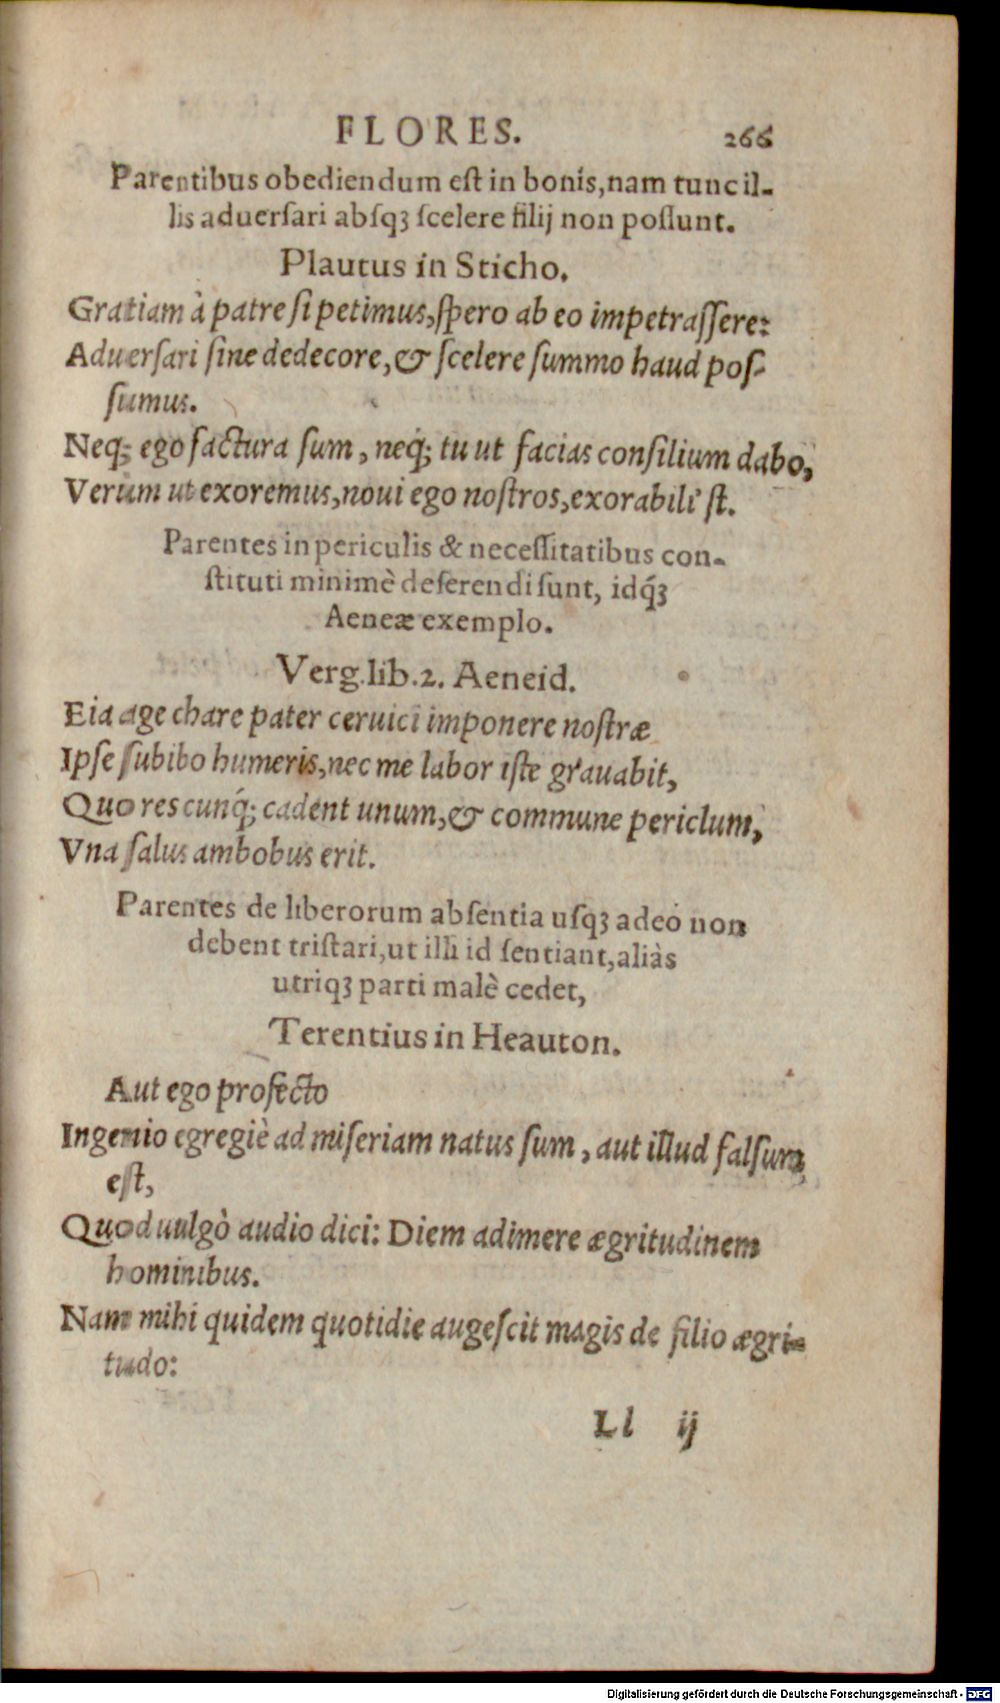 FLORES. 266
Parentibus obediendum est in bonis, nam tunc il-
lis aduersari absqꝫ scelere filij non possunt.
Plautus in Sticho.
Gratiam à patre si petimus, spero ab eo impetrassere:
Aduersari sine dedecore, & scelere summo haud pos-
sumus.
Neq; ego factura sum, neq́; tu ut facias consilium dabo,
Verùm ut exoremus, noui ego nostros, exorabili' st.
Parentes in periculis & necessitatibus con-
stituti minimè deserendi sunt, idq́ꝫ
Aeneæ exemplo.
Verg. lib. 2. Aeneid.
Eia age chare pater ceruici imponere nostræ
Ipse subibo humeris, nec me labor iste grauabit,
Quo res cunq́; cadent unum, & commune periclum,
Vna salus ambobus erit.
Parentes de liberorum absentia usqꝫ adeo non
debent tristari, ut illi id sentiant, aliàs
utriqꝫ parti malè cedet,
Terentius in Heauton.
Aut ego profecto
Ingenio egregiè ad miseriam natus sum, aut illud falsum
est,
Quod uulgò audio dici: Diem adimere ægritudinem
hominibus.
Nam mihi quidem quotidie augescit magis de filio ægri-
tudo:
Ll ij
Digitalisierung gefördert durch die Deutsche Forschungsgemeinschaft - DFG